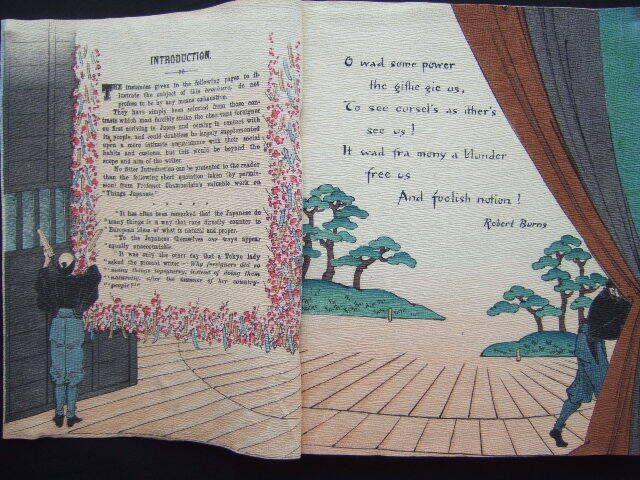 INTRODUCTION.
THE instances given in the following pages to il-
lustrate the subject of this brochure, do not
profess to be by any means exhaustive.
They have simply been selected from those con-
trasts which most forcibly strike the observant foreigner
on first arriving in Japan and coming in contact with
its people, and could doubtless be largely supplemented
upon a more intimate acquaintance with their social
habits and customs, but this would be beyond the
scope and aim of the writer.
No fitter Introduction can be presented to the reader
than the following short quotation taken (by permis-
sion) from Professor Chamberlain's valuable work on
"Things Japanese."
"It has often been remarked that the Japanese do
"many things in a way that runs directly counter to
"European ideas of what is natural and proper.
"To the Japanese themselves our ways appear
"equally unaccountable.
"It was only the other day that a Tokyo lady
"asked the present writer:- Why foreigners did so
"many things topsyturvy, instead of doing them
"naturally, after the manner of her country-
"people?"
O wad some power
the giftie gie us,
To see oursel's as ither's
see us!
It wad fra mony a blunder
free us
And foolish notion!
Robert Burns